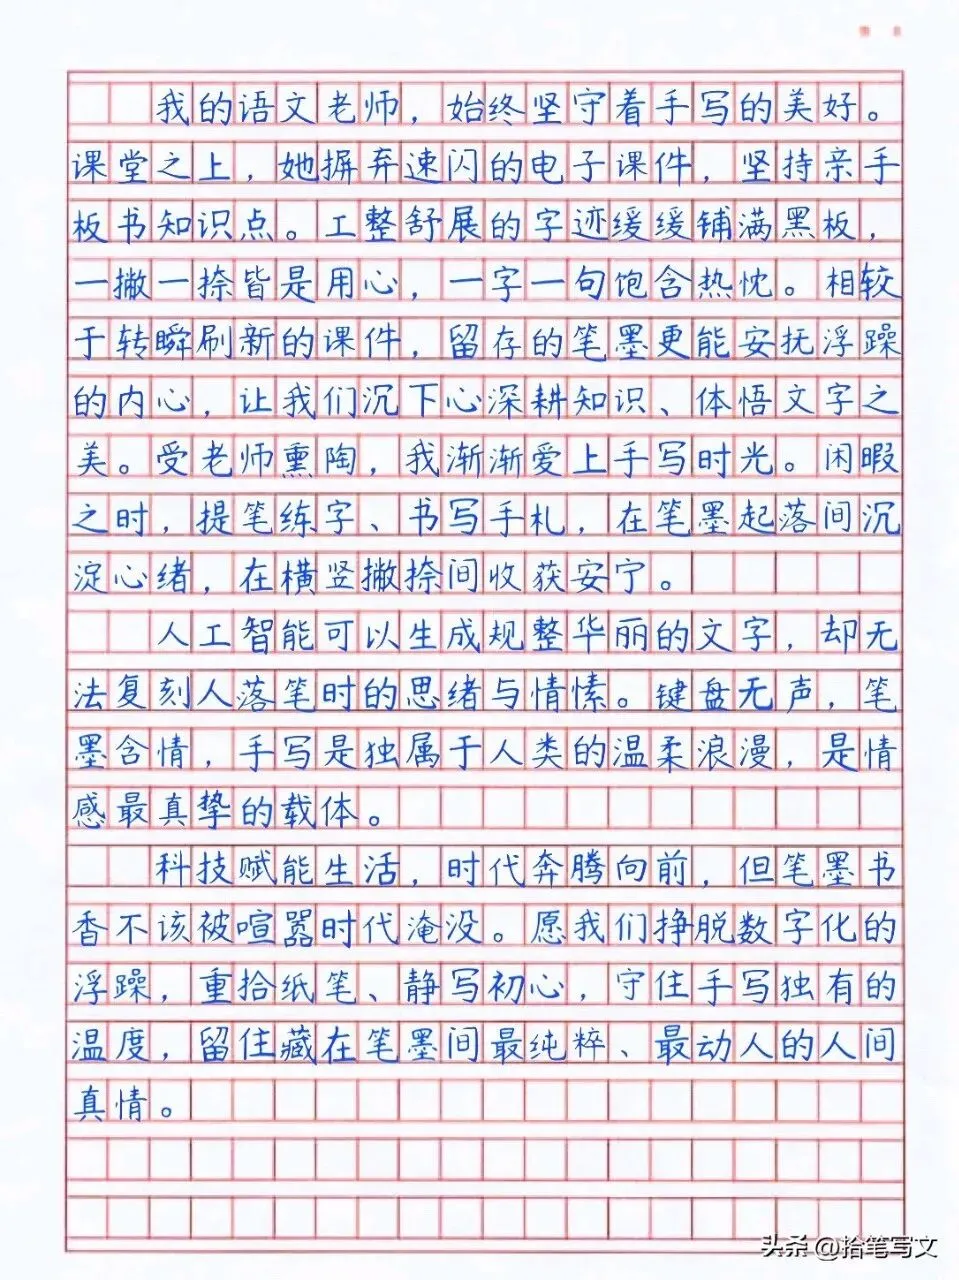 我的语文老师，始终坚守着手写的美好。
课堂之上，她摒弃速闪的电子课件，坚持亲手
板书知识点。工整舒展的字迹缓缓铺满黑板，
一撇一捺皆是用心，一字一句饱含热忱。相较
于转瞬刷新的课件，留存的笔墨更能安抚浮躁
的内心，让我们沉下心深耕知识、体悟文字之
美。受老师熏陶，我渐渐爱上手写时光。闲暇
之时，提笔练字、书写手札，在笔墨起落间沉
淀心绪，在横竖撇捺间收获安宁。
人工智能可以生成规整华丽的文字，却无
法复刻人落笔时的思绪与情愫。键盘无声，笔
墨含情，手写是独属于人类的温柔浪漫，是情
感最真挚的载体。
科技赋能生活，时代奔腾向前，但笔墨书
香不该被喧嚣时代淹没。愿我们挣脱数字化的
浮躁，重拾纸笔、静写初心，守住手写独有的
温度，留住藏在笔墨间最纯粹、最动人的人间
真情。
头条 @拾笔写文